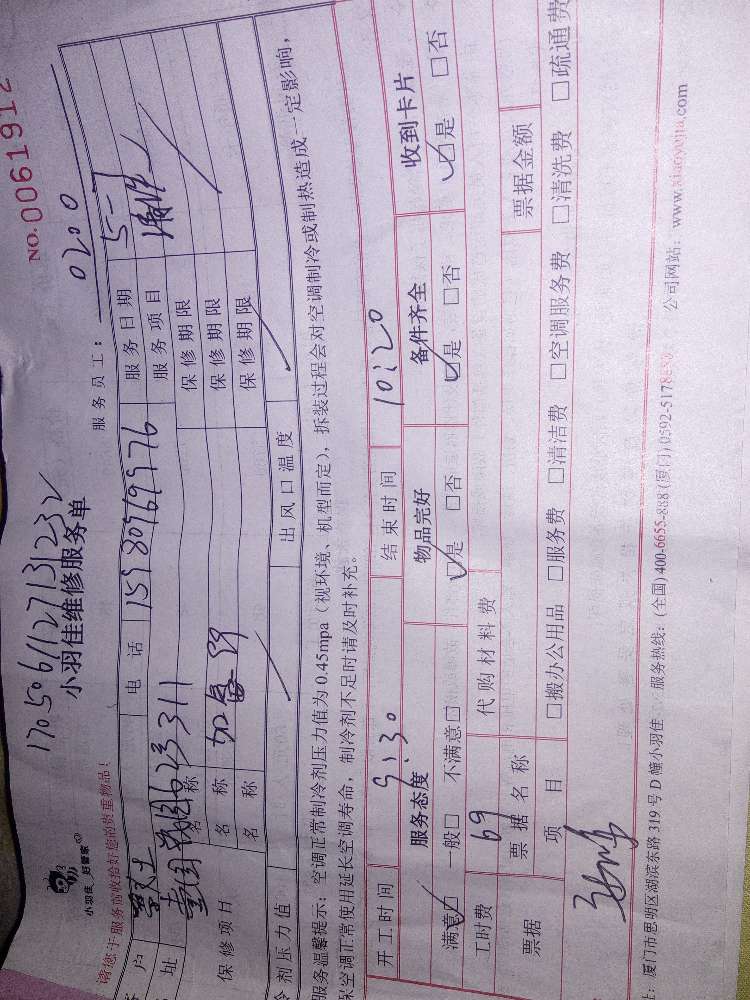 NO.0061912
1705061127131232
小羽佳维修服务单
小羽佳 好管家
请您于服务前收拾好您的贵重物品!
服务员工: 0200
户 电话 15980969976 服务日期 5-7
址 623311 服务项目
保修项目 名称 保修期限
名称 保修期限
名称 保修期限
剂压力值 出风口温度
服务温馨提示: 空调正常制冷剂压力值为0.45mpa(视环境、机型而定), 拆装过程会对空调制冷或制热造成一定影响,
保空调正常使用延长空调寿命, 制冷剂不足时请及时补充。
开工时间 9:30 结束时间 10:20
服务态度 物品完好 备件齐全 收到卡片
满意□ 一般□ 不满意□ □是 □否 □是 □否 □是 □否
工时费 69 代购材料费
票据 票据名称 票据金额
项目 □搬办公用品 □服务费 □清洁费 □空调服务费 □清洗费 □疏通费
: 厦门市思明区湖滨东路319号D幢小羽佳 服务热线: (全国)400-6655-888 (厦门)0592-5178 公司网站: www.xiaoyujia.com